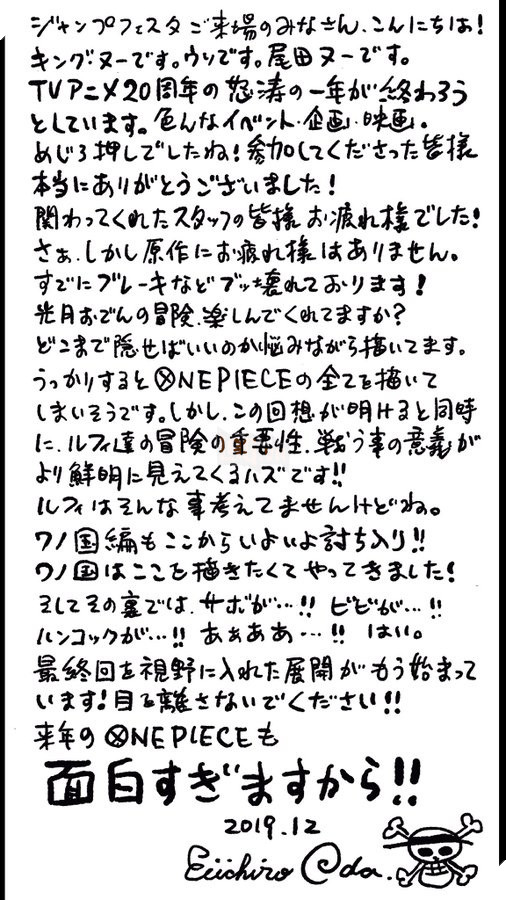 ジャンプフェスタご来場のみなさん、こんにちは!
キングヌーです。ウソです。尾田ヌーです。
TVアニメ20周年の怒涛の一年が終わろう
としています。色んなイベント・企画・映画。
めじろ押しでしたね!参加してくださった皆様
本当にありがとうございました!
関わってくれたスタッフの皆様お疲れ様でした!
さぁ、しかし原作にお疲れ様はありません。
すでにブレーキなどブッ壊れております!
光月おでんの冒険、楽しんでくれてますか?
どこまで隠せばいいのか悩みながら描いてます。
うっかりするとONE PIECEの全てを描いて
しまいそうです。しかし、この回想が明けると同時
に、ルフィ達の冒険の重要性、戦う事の意義が
より鮮明に見えてくるハズです!!
ルフィはそんな事考えてませんけどね。
ワノ国編もここからいよいよ討ち入り!!
ワノ国はここを描きたくてやってきました!
そしてその裏では、サボが…!!ビビが…!!
ハンコックが…!!あぁあぁ…!!はい。
最終回を視野に入れた展開がもう始まって
います!目を離さないでください!!
来年のONE PIECEも
面白すぎますから!!
2019.12
Eiichiro Oda.